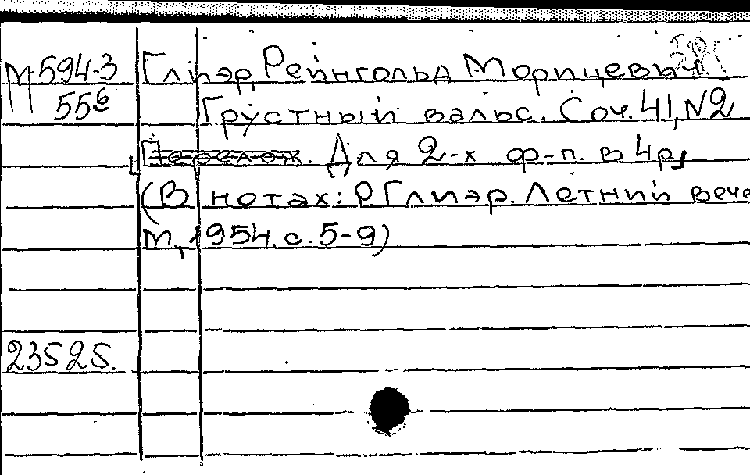 М594-3 Глиэр, Рейнгольд Морицевич.
55б Грустный вальс. Соч. 41, N2
Переложен. Для 2-х ф-п. в 4 р.
(В нотах: Р. Глиэр. Летний вече
М., 1954. с. 5-9)
23525.